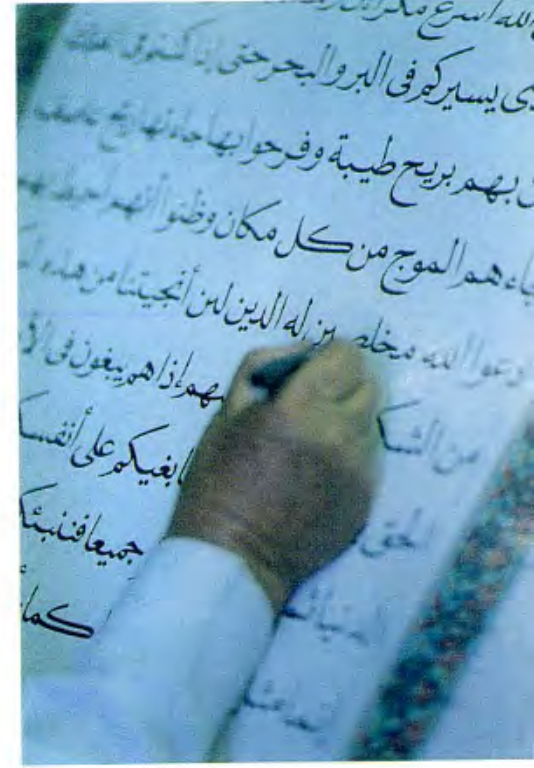 الله أسرع مكرا إن
يسيركم فى البر والبحر حتى إذا كنتم فى الفلك
بهم بريح طيبة وفرحوا بها جاءتها ريح عاصف
جاءهم الموج من كل مكان وظنوا أنهم أحيط بهم
دعوا الله مخلصين له الدين لئن أنجيتنا من هذه
من الشك هم إذا هم يبغون فى الأ
الحق بغيكم على أنفسك
جميعا فننبئك
كما